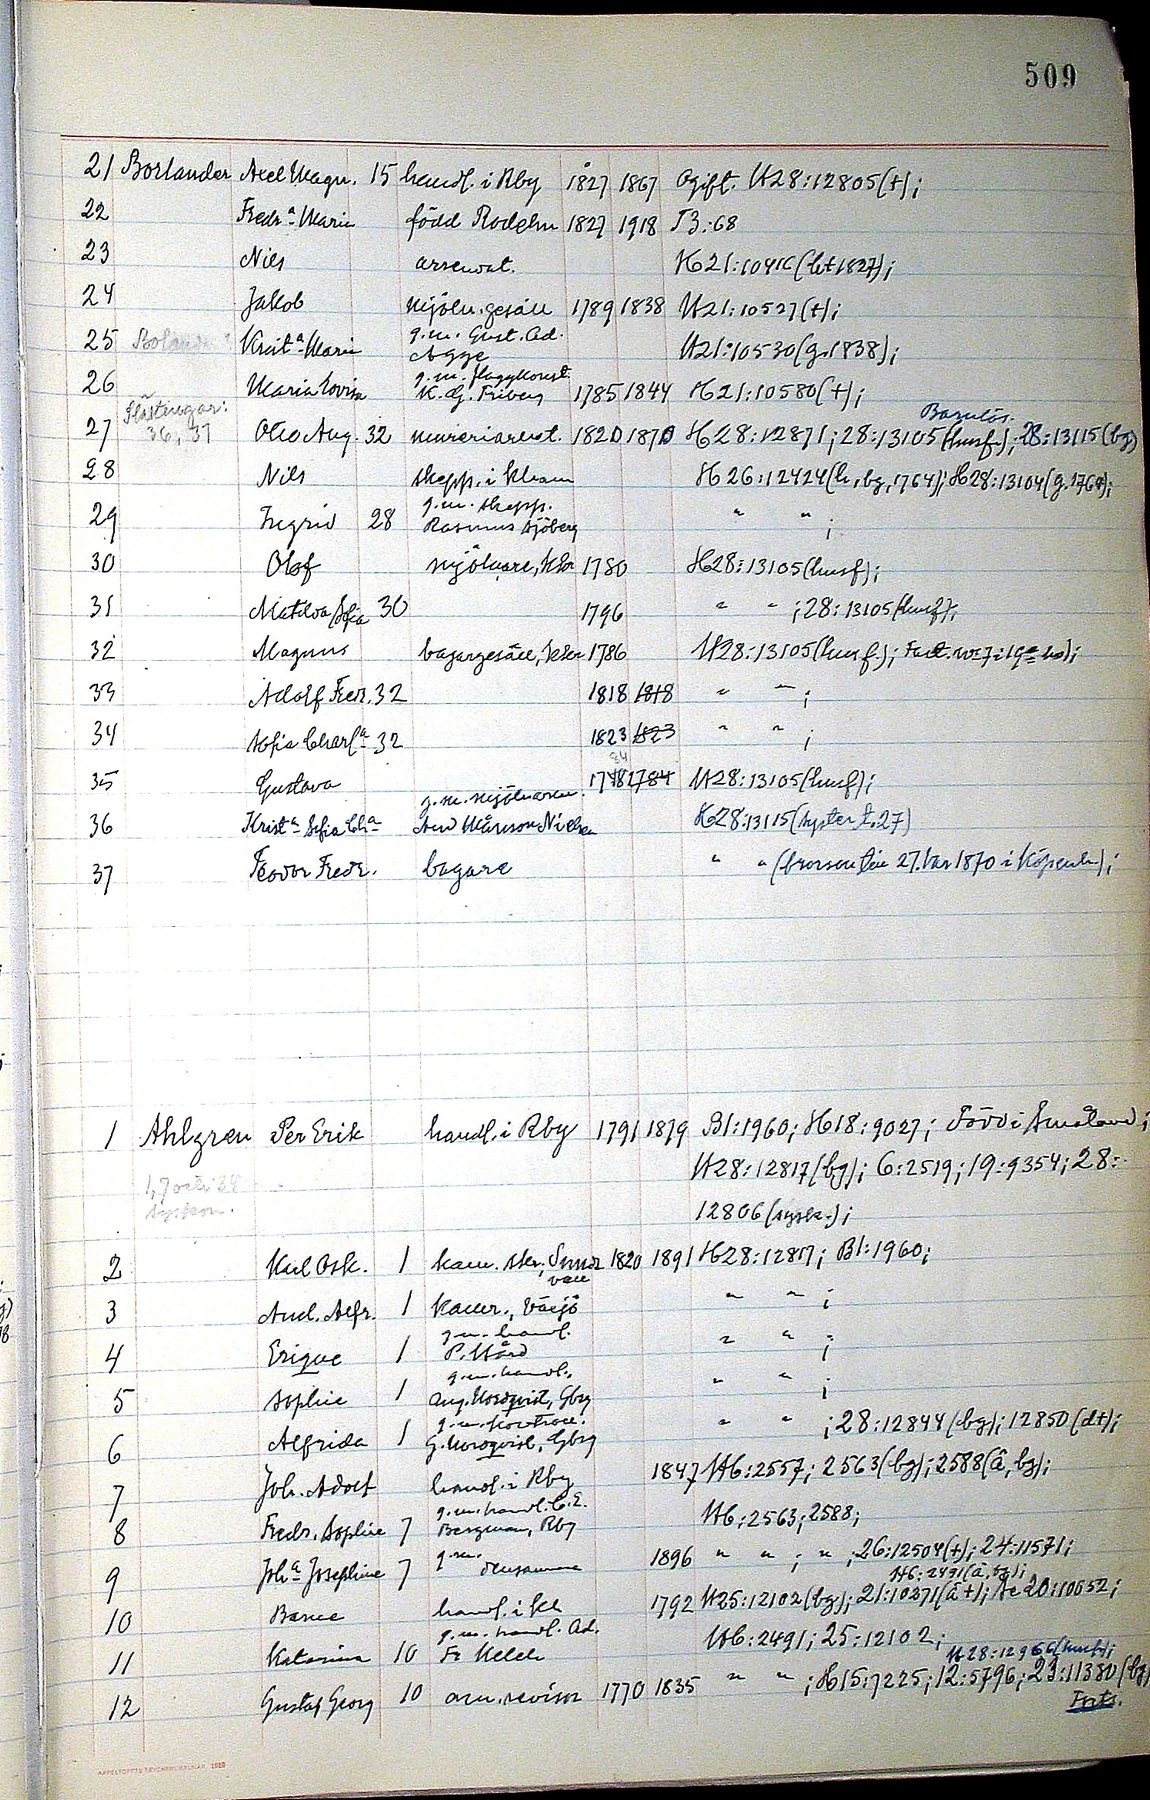 509
21 Borlander Axel Magn. 15 handl. i Rby 1827 1867 Ogift. H28:12805(+);
22 Fredr.a Maria född Rodehn 1827 1918 T3:68
23 Nils arrendat. H21:10416(bt 1827);
24 Jakob mjöln.gesäll 1789 1838 H21:10527(+);
25 Krist.a Maria g.m. Gust. Ad. H21:10530(g.1838);
26 Maria Lovisa g.m. flaggkonst. K. G. Friberg 1785 1844 H21:10580(+);
Släktingar: 36, 37
Barnlös.
27 Otto Aug. 32 mureriarbet. 1820 1870 H28:12871; 28:13105(husf.); 28:13115(bg)
28 Nils skepp. i Khamn H26:12424(h, bg, 1764); H28:13104(g.1764);
29 Ingrid 28 g.m. skepp. Rasmus Sjöberg " " ;
30 Olof mjölnare, 1780 H28:13105(husf);
31 Matilda Sofia 30 1796 " " ; 28:13105(husf);
32 Magnus bagargesäll, 1786 H28:13105(husf);
33 Adolf Fredr. 32 1818 1818 " " ;
34 Sofia Charl.a 32 1823 1823 " " ;
35 Gustava 1784 H28:13105(husf);
36 Krist.a Sofia Ch.a g.m. mjölnaren And Månsson H28:13115(syster t. 27)
37 Teodor Fredr. bagare " " (brorson till 27. Var 1870 i Köpenh.);
1 Ahlgren Per Erik handl. i Rby 1791 1879 Bl:1960; H18:9027; Född i Småland;
H28:12817(bg); 6:2519; 19:9354; 28:
1, 7 och 28 syskon.
12806(syssk.);
2 Karl Osk. 1 kam. skr., Sundsvall 1820 1891 H28:12817; Bl:1960;
3 And. Alfr. 1 kamr., Växjö " " ;
4 Erique 1 g.m. handl. P. Hård " " ;
5 Sophie 1 g.m. handl. Aug. Nordqvist, Gbg " " ;
6 Alfrida 1 g.m. kontroll. G. Nordqvist, Gbg " " ; 28:12844(bg); 12850(d+);
7 Joh. Adolf handl. i Rby 1847 H6:2557; 2563(bg); 2588(ä, bg);
8 Fredr. Sophie 7 g.m. handl. C. E. Bergman, Rby H6:2563; 2588;
9 Joh.a Josephine 7 g.m. densamme 1896 " " ; " ; 26:12504(+); 24:11571;
H6:2491(ä, bg);
10 handl. i Kk 1792 H25:12102(bg); 21:10371(ä+); 20:10052;
11 Katarina 10 g.m. handl. Ad. Fr H6:2491; 25:12102;
H28:12966(husf);
12 Gustaf Georg 10 am. revisor 1770 1835 " " ; H15:7225; 12:5796; 23:11380(bg)
Forts.